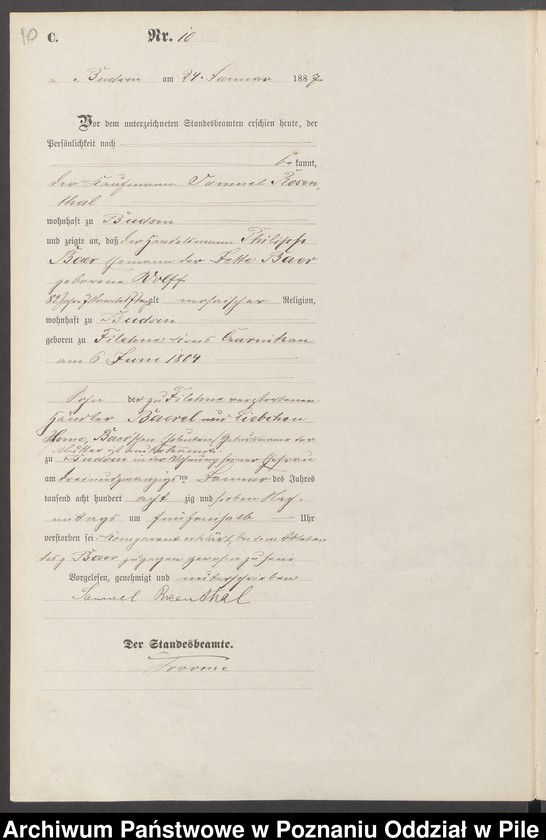 10
C. Nr. 10
Budsin am 24. Januar 1887
Vor dem unterzeichneten Standesbeamten erschien heute, der
Persönlichkeit nach
bekannt,
der Kaufmann Samuel Rosen
thal
wohnhaft zu Budsin
und zeigte an, daß der Handelsmann Philipp
Baer Ehemann der Jette Baer
geborene Wolff
82 Jahre 7 Monate alt mosaischer Religion,
wohnhaft zu Budsin
geboren zu Filehne Kreis Czarnikau
am 6 Juni 1804
Sohn der zu Filehne verstorbenen
Händler Baerel und Liebchen
Baer'schen Eheleute, Geburtsname der
Mutter ist unbekannt
zu Budsin in der Wohnung seiner Ehefrau
am dreiundzwanzigsten Januar des Jahres
tausend acht hundert acht zig und sieben Nach-
mittags um fünfeinhalb Uhr
verstorben sei Komparent erklärt, bei dem Ableben
des Baer zugegen gewesen zu sein
Vorgelesen, genehmigt und unterschrieben
Samuel Rosenthal
Der Standesbeamte.
Archiwum Państwowe w Poznaniu Oddział w Pile